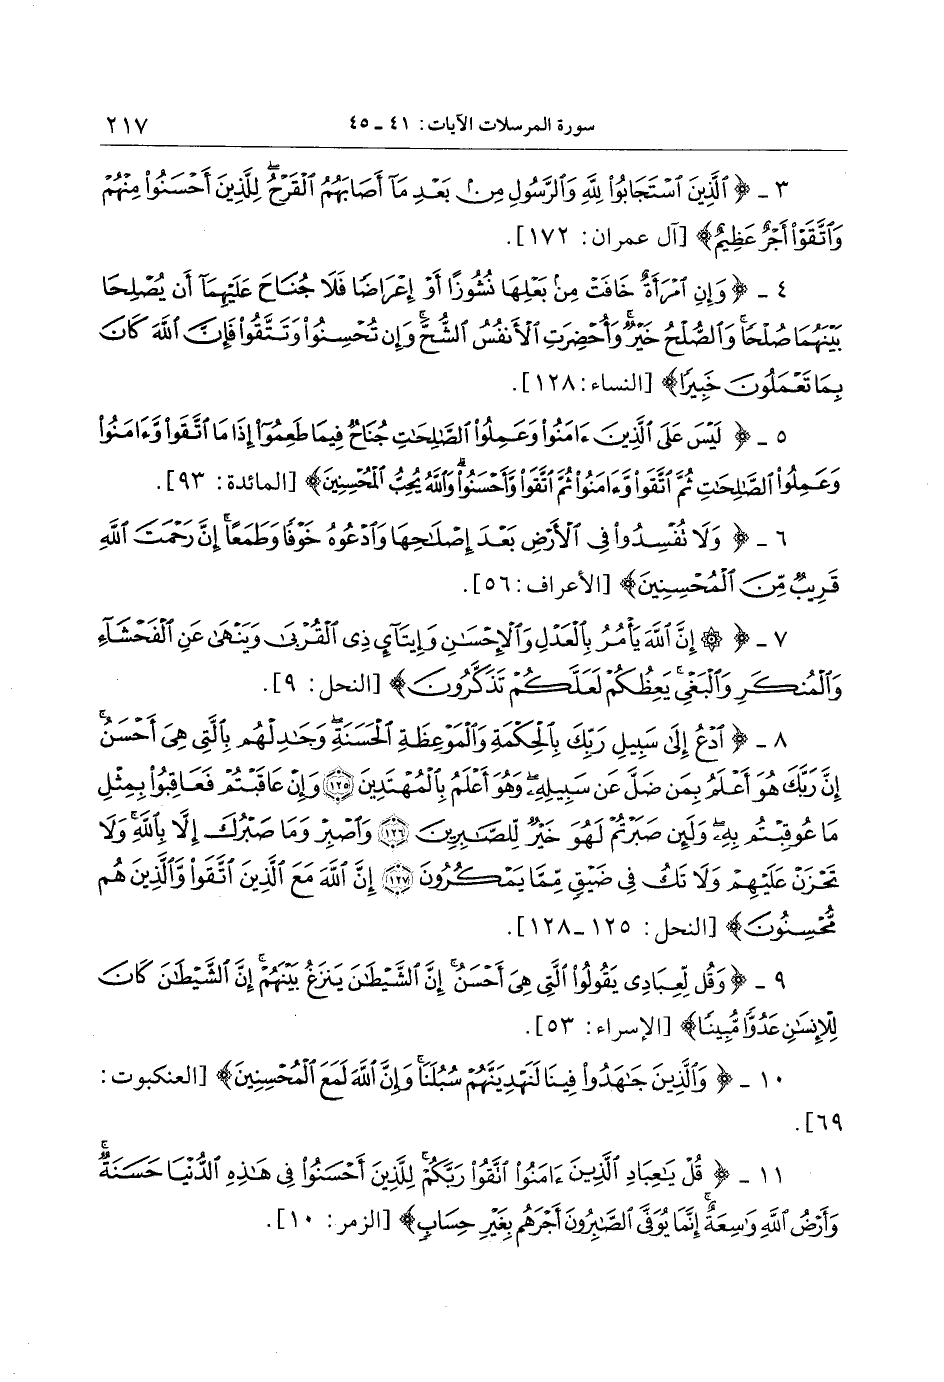 سورة المرسلات الآيات: ٤١ ـ ٤٥ ٢١٧
٣ ـ ﴿ ٱلَّذِينَ ٱسْتَجَابُوا۟ لِلَّهِ وَٱلرَّسُولِ مِنۢ بَعْدِ مَآ أَصَابَهُمُ ٱلْقَرْحُ ۚ لِلَّذِينَ أَحْسَنُوا۟ مِنْهُمْ
وَٱتَّقَوْا۟ أَجْرٌ عَظِيمٌ﴾ [آل عمران: ١٧٢].
٤ ـ ﴿ وَإِنِ ٱمْرَأَةٌ خَافَتْ مِنۢ بَعْلِهَا نُشُوزًا أَوْ إِعْرَاضًا فَلَا جُنَاحَ عَلَيْهِمَآ أَن يُصْلِحَا
بَيْنَهُمَا صُلْحًا ۚ وَٱلصُّلْحُ خَيْرٌ ۗ وَأُحْضِرَتِ ٱلْأَنفُسُ ٱلشُّحَّ ۚ وَإِن تُحْسِنُوا۟ وَتَتَّقُوا۟ فَإِنَّ ٱللَّهَ كَانَ
بِمَا تَعْمَلُونَ خَبِيرًا﴾ [النساء: ١٢٨].
٥ ـ ﴿ لَيْسَ عَلَى ٱلَّذِينَ ءَامَنُوا۟ وَعَمِلُوا۟ ٱلصَّـٰلِحَـٰتِ جُنَاحٌ فِيمَا طَعِمُوٓا۟ إِذَا مَا ٱتَّقَوا۟ وَّءَامَنُوا۟
وَعَمِلُوا۟ ٱلصَّـٰلِحَـٰتِ ثُمَّ ٱتَّقَوا۟ وَّءَامَنُوا۟ ثُمَّ ٱتَّقَوا۟ وَّأَحْسَنُوا۟ ۗ وَٱللَّهُ يُحِبُّ ٱلْمُحْسِنِينَ﴾ [المائدة: ٩٣].
٦ ـ ﴿ وَلَا تُفْسِدُوا۟ فِى ٱلْأَرْضِ بَعْدَ إِصْلَـٰحِهَا وَٱدْعُوهُ خَوْفًا وَطَمَعًا ۚ إِنَّ رَحْمَتَ ٱللَّهِ
قَرِيبٌ مِّنَ ٱلْمُحْسِنِينَ﴾ [الأعراف: ٥٦].
٧ ـ ﴿ ۞ إِنَّ ٱللَّهَ يَأْمُرُ بِٱلْعَدْلِ وَٱلْإِحْسَـٰنِ وَإِيتَآئِ ذِى ٱلْقُرْبَىٰ وَيَنْهَىٰ عَنِ ٱلْفَحْشَآءِ
وَٱلْمُنكَرِ وَٱلْبَغْىِ ۚ يَعِظُكُمْ لَعَلَّكُمْ تَذَكَّرُونَ﴾ [النحل: ٩].
٨ ـ ﴿ ٱدْعُ إِلَىٰ سَبِيلِ رَبِّكَ بِٱلْحِكْمَةِ وَٱلْمَوْعِظَةِ ٱلْحَسَنَةِ ۖ وَجَـٰدِلْهُم بِٱلَّتِى هِىَ أَحْسَنُ ۚ
إِنَّ رَبَّكَ هُوَ أَعْلَمُ بِمَن ضَلَّ عَن سَبِيلِهِۦ ۖ وَهُوَ أَعْلَمُ بِٱلْمُهْتَدِينَ ١٢٥ وَإِنْ عَاقَبْتُمْ فَعَاقِبُوا۟ بِمِثْلِ
مَا عُوقِبْتُم بِهِۦ ۖ وَلَئِن صَبَرْتُمْ لَهُوَ خَيْرٌ لِّلصَّـٰبِرِينَ ١٢٦ وَٱصْبِرْ وَمَا صَبْرُكَ إِلَّا بِٱللَّهِ ۚ وَلَا
تَحْزَنْ عَلَيْهِمْ وَلَا تَكُ فِى ضَيْقٍ مِّمَّا يَمْكُرُونَ ١٢٧ إِنَّ ٱللَّهَ مَعَ ٱلَّذِينَ ٱتَّقَوا۟ وَّٱلَّذِينَ هُم
مُّحْسِنُونَ﴾ [النحل: ١٢٥ ـ ١٢٨].
٩ ـ ﴿ وَقُل لِّعِبَادِى يَقُولُوا۟ ٱلَّتِى هِىَ أَحْسَنُ ۚ إِنَّ ٱلشَّيْطَـٰنَ يَنزَغُ بَيْنَهُمْ ۚ إِنَّ ٱلشَّيْطَـٰنَ كَانَ
لِلْإِنسَـٰنِ عَدُوًّا مُّبِينًا﴾ [الإسراء: ٥٣].
١٠ ـ ﴿ وَٱلَّذِينَ جَـٰهَدُوا۟ فِينَا لَنَهْدِيَنَّهُمْ سُبُلَنَا ۚ وَإِنَّ ٱللَّهَ لَمَعَ ٱلْمُحْسِنِينَ﴾ [العنكبوت:
٦٩].
١١ ـ ﴿ قُلْ يَـٰعِبَادِ ٱلَّذِينَ ءَامَنُوا۟ ٱتَّقُوا۟ رَبَّكُمْ ۚ لِلَّذِينَ أَحْسَنُوا۟ فِى هَـٰذِهِ ٱلدُّنْيَا حَسَنَةٌ ۗ
وَأَرْضُ ٱللَّهِ وَٰسِعَةٌ ۗ إِنَّمَا يُوَفَّى ٱلصَّـٰبِرُونَ أَجْرَهُم بِغَيْرِ حِسَابٍ﴾ [الزمر: ١٠].